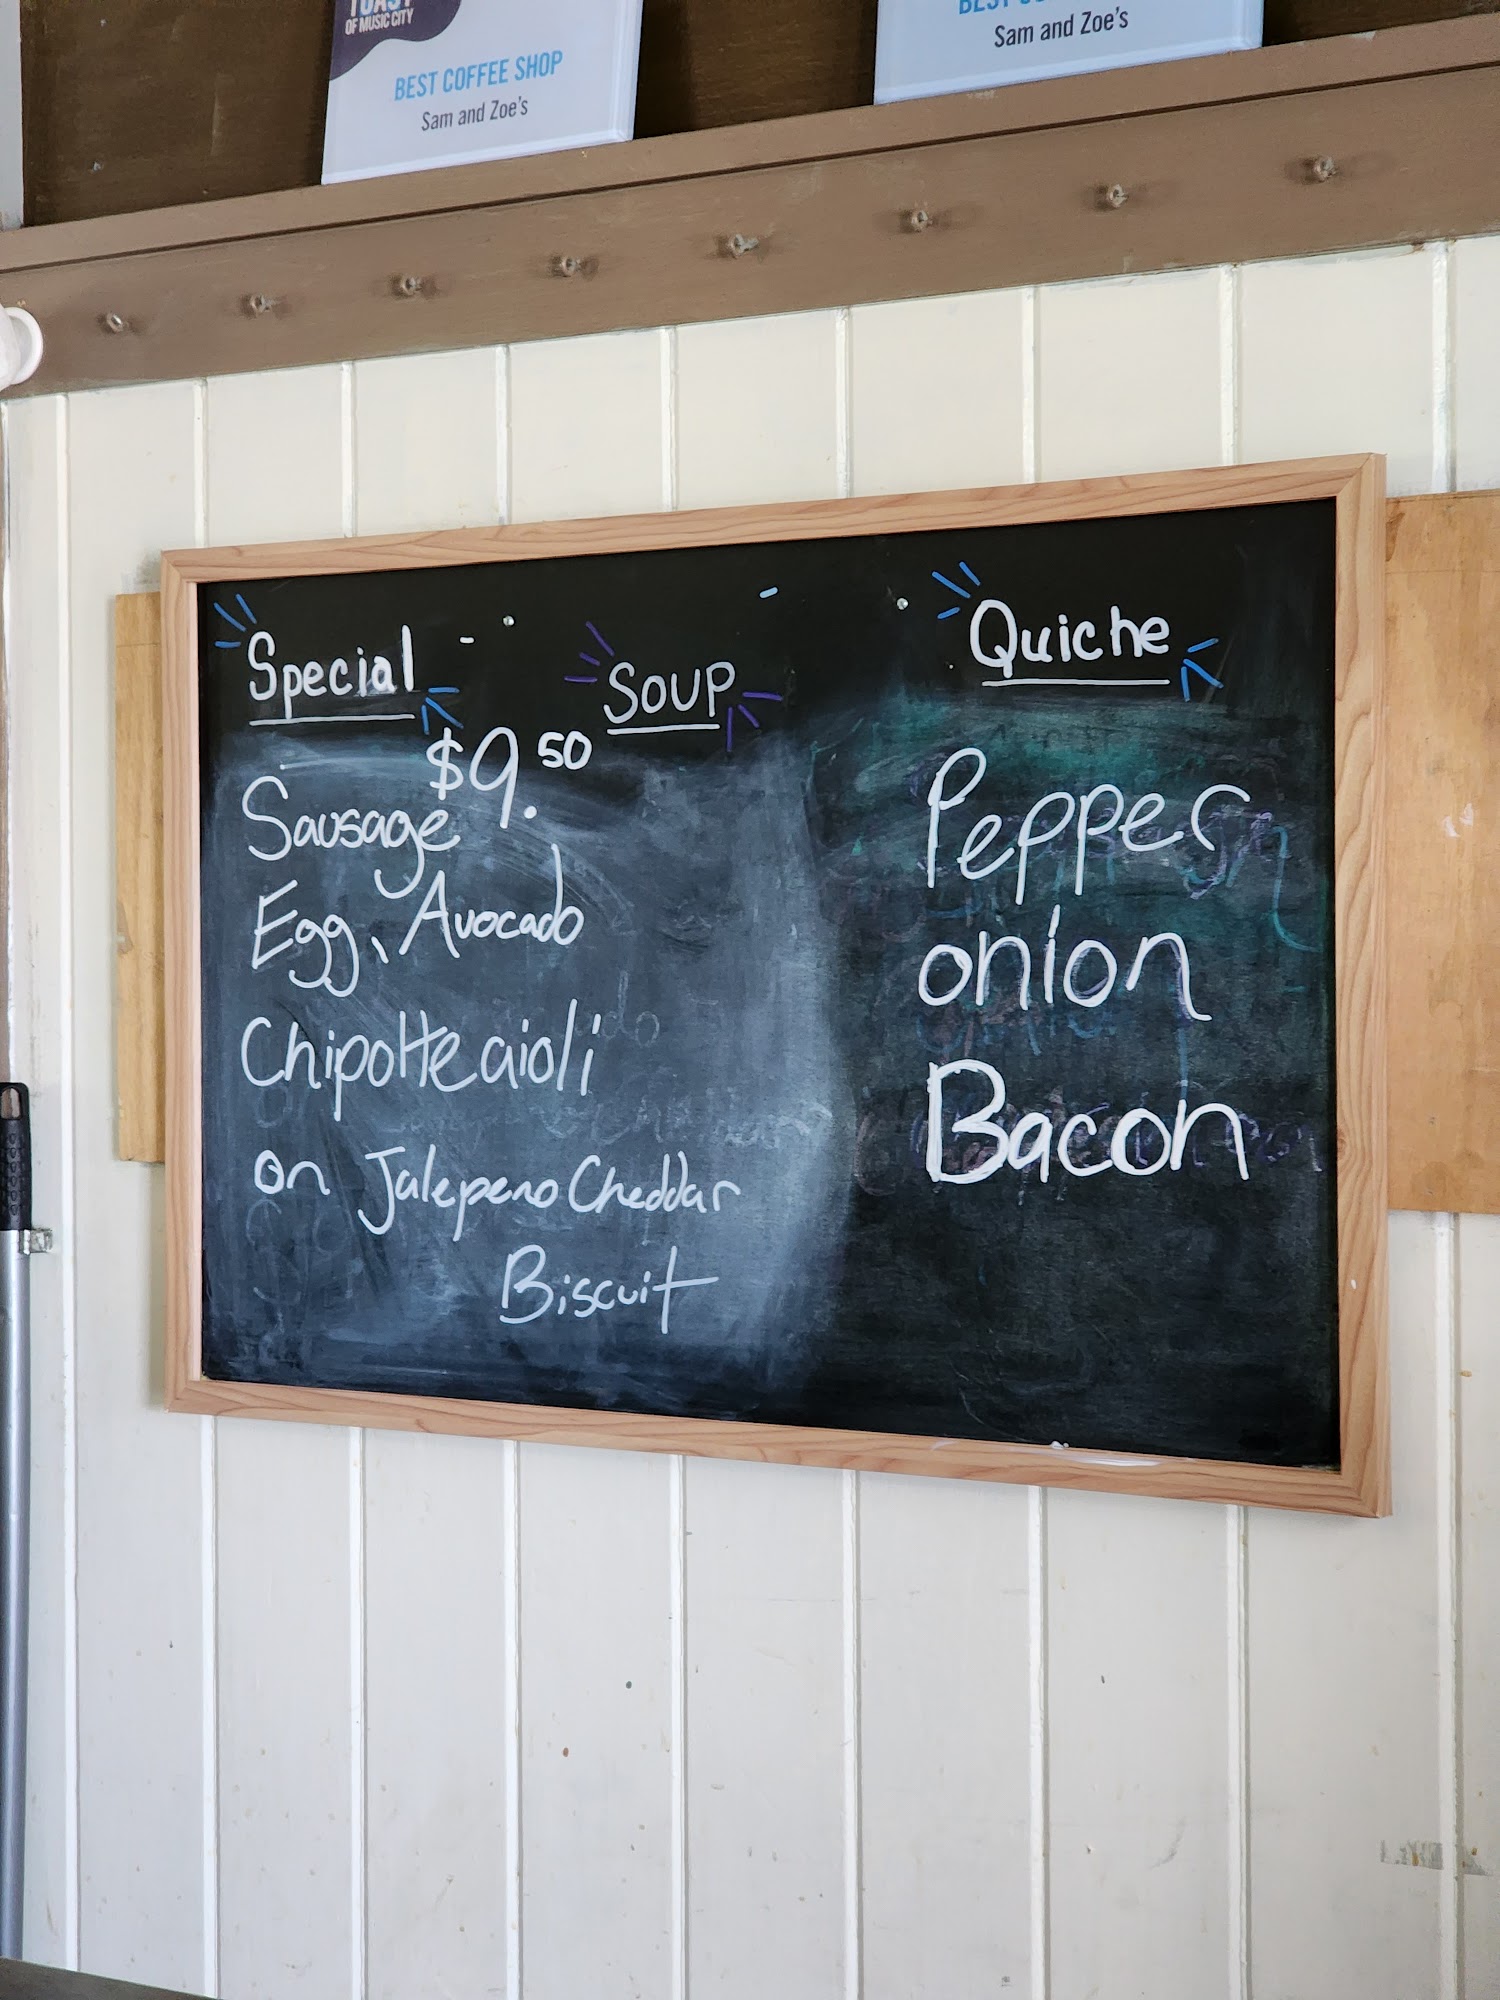 TOAST
OF MUSIC CITY
BEST COFFEE SHOP
Sam and Zoe's
BEST
Sam and Zoe's
Special
$9.50
Sausage
Egg, Avocado
Chipotte aioli
on Jalepeno Cheddar
Biscuit
Soup
Quiche
Pepper
onion
Bacon